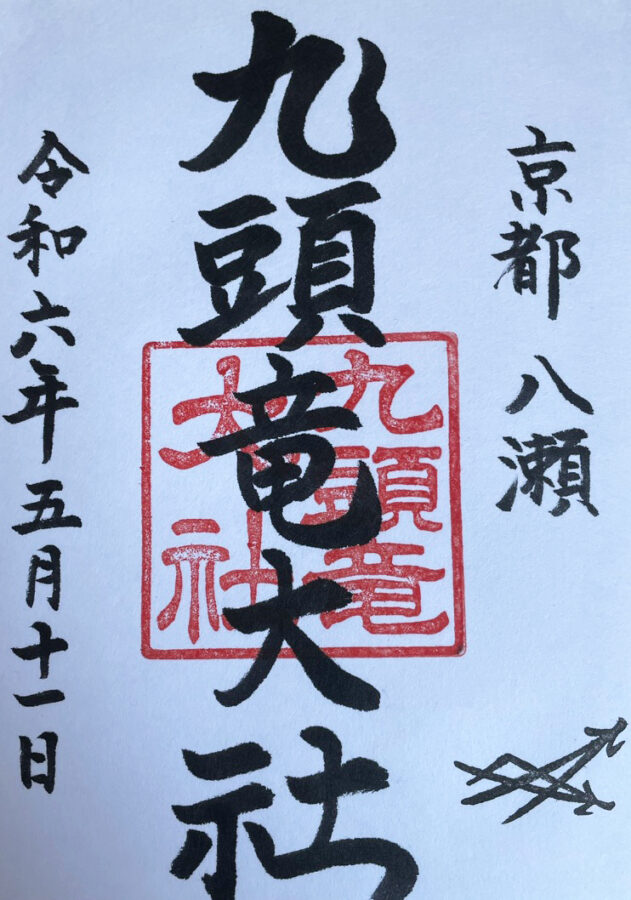 京都 八瀬
九頭竜大社
九頭竜
大社
令和六年五月十一日